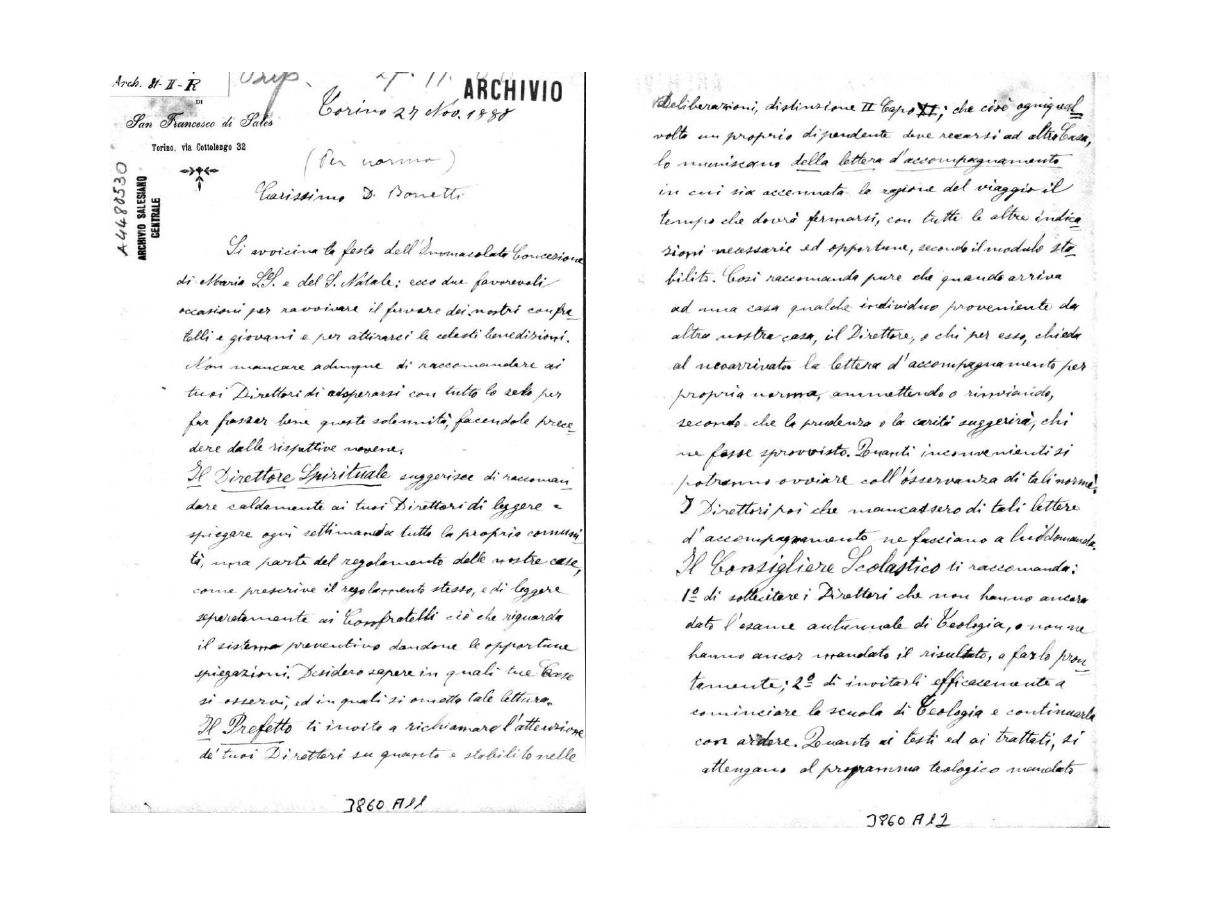 Arch. 31-II-R
ARCHIVIO
DI
San Francesco di Sales
Torino, via Cottolengo 32
A4480530
ARCHIVIO SALESIANO
CENTRALE
Torino 27 Nov. 1888
(Per norma)
Carissimo D. Bonetti
Si avvicina la festa dell'Immacolata Concezione
di Maria SS. e del S. Natale: ecco due favorevoli
occasioni per ravvivare il fervore dei nostri confra
telli e giovani e per attirarci le celesti benedizioni.
Non mancare adunque di raccomandare ai
tuoi Direttori di adoperarsi con tutto lo zelo per
far passar bene queste solennità, facendole prece
dere dalle rispettive novene.
Il Direttore Spirituale suggerisce di raccoman
dare caldamente ai tuoi Direttori di leggere e
spiegare ogni settimana a tutta la propria comuni
tà, una parte del regolamento delle nostre case,
come prescrive il regolamento stesso, e di leggere
separatamente ai Confratelli ciò che riguarda
il sistema preventivo dandone le opportune
spiegazioni. Desidero sapere in quali tue Case
si osservi, ed in quali si ometta tale lettura.
Il Prefetto ti invita a richiamare l'attenzione
de' tuoi Direttori su quanto è stabilito nelle
3860 A11
Deliberazioni, distinzione II Capo XI; che cioè ogniqual
volta un proprio dipendente deve recarsi ad altra Casa,
lo muniscano della lettera d'accompagnamento
in cui sia accennata la ragione del viaggio il
tempo che dovrà fermarsi, con tutte le altre indica
zioni necessarie ed opportune, secondo il modulo sta
bilito. Così raccomanda pure che quando arriva
ad una casa qualche individuo proveniente da
altra nostra casa, il Direttore, o chi per esso, chieda
al neoarrivato la lettera d'accompagnamento per
propria norma, ammettendo o rinviando,
secondo che la prudenza o la carità suggerirà, chi
ne fosse sprovvisto. Quanti inconvenienti si
potranno ovviare coll'osservanza di tali norme!
I Direttori poi che mancassero di tali lettere
d'accompagnamento ne facciano a lui domanda.
Il Consigliere Scolastico ti raccomanda:
1º di sollecitare i Direttori che non hanno ancora
dato l'esame autunnale di Teologia, o non ne
hanno ancor mandato il risultato, a farlo pron
tamente; 2º di invitarli efficacemente a
cominciare la scuola di Teologia e continuarla
con ardore. Quanto ai testi ed ai trattati, si
attengano al programma teologico mandato
3860 A12